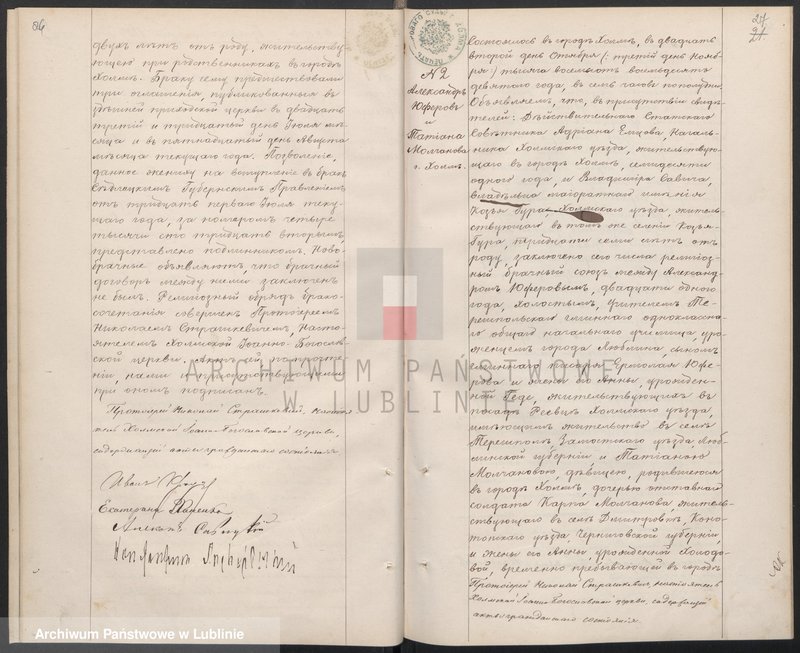 86
двухъ лѣтъ отъ роду, жительству-
ющею при родственникахъ въ городѣ
Холмѣ. Браку сему предшествовали
три оглашенія, публикованныя въ
здѣшней приходской церкви въ двадцать
третій и тридцатый день Іюля мѣ-
сяца и въ пятнадцатый день Августа
мѣсяца текущаго года. Позволеніе,
данное жениху на вступленіе въ бракъ
Сѣдлецкимъ Губернскимъ Правленіемъ
отъ тридцать перваго Іюля теку-
щаго года, за номеромъ четыре
тысячи сто тридцать вторымъ,
представлено подлинникомъ. Ново-
брачные объявляютъ, что брачный
договоръ между ними заключенъ
не былъ. Религіозный обрядъ брако-
сочетанія совершенъ Протоіереемъ
Николаемъ Страшкевичемъ, Насто-
ятелемъ Холмской Іоанно-Богослов-
ской церкви. Актъ сей по прочте-
ніи, нами и присутствующими
при ономъ подписанъ.
Протоіерей Николай Страшкевичъ, Настоя-
тель Холмской Іоанно-Богословской церкви,
содержащій акты гражданскаго состоянія.
Иванъ
Екатерина
27
21
N 2
Александръ
Юферовъ
и
Татіана
Молчанова
г. Холмъ.
Состоялось въ городѣ Холмѣ, въ двадцать
второй день Октября (: третій день Нояб-
ря :) тысяча восемьсотъ восемьдесятъ
девятаго года, въ семь часовъ пополудни.
Объявляемъ, что, въ присутствіи свидѣ-
телей: Дѣйствительнаго Статскаго
Совѣтника Адріана Емцова, Началь-
ника Холмскаго уѣзда, жительствую-
щаго въ городѣ Холмѣ, семидесяти
одного года, и Владиміра Савича,
владѣльца маіоратнаго имѣнія
Козья Гура Холмскаго уѣзда, житель-
ствующаго въ томъ же селеніи Козья-
Гура, тридцати семи лѣтъ отъ
роду, заключенъ сего числа религіоз-
ный брачный союзъ между Александ-
ромъ Юферовымъ, двадцати одного
года, холостымъ, учителемъ Те-
решпольскаго гминнаго однокласна-
го общаго начальнаго училища, уро-
женцемъ города Люблина, сыномъ
гминнаго писаря Ермолая Юфе-
рова и жены его Анны, урожден-
ной Геде, жительствующихъ въ
посадѣ Реевцѣ Холмскаго уѣзда,
имѣющимъ жительство въ селѣ
Терешполь, Замостскаго уѣзда Люб-
линской губерніи и Татіаною
Молчановою, дѣвицею, родившеюся
въ городѣ Холмѣ, дочерью отставнаго
солдата Карпа Молчанова житель-
ствующаго въ селѣ Дмитровкѣ Коно-
топскаго уѣзда, Черниговской губерніи
и жены его Анны урожденной Холодо-
вой временно пребывающей въ городѣ
Протоіерей Николай Страшкевичъ, настоятель
Холмской Іоанно-Богословской церкви, содержащій
акты гражданскаго состоянія.
ARCHIWUM PAŃSTWOWE
W LUBLINIE
Archiwum Państwowe w Lublinie